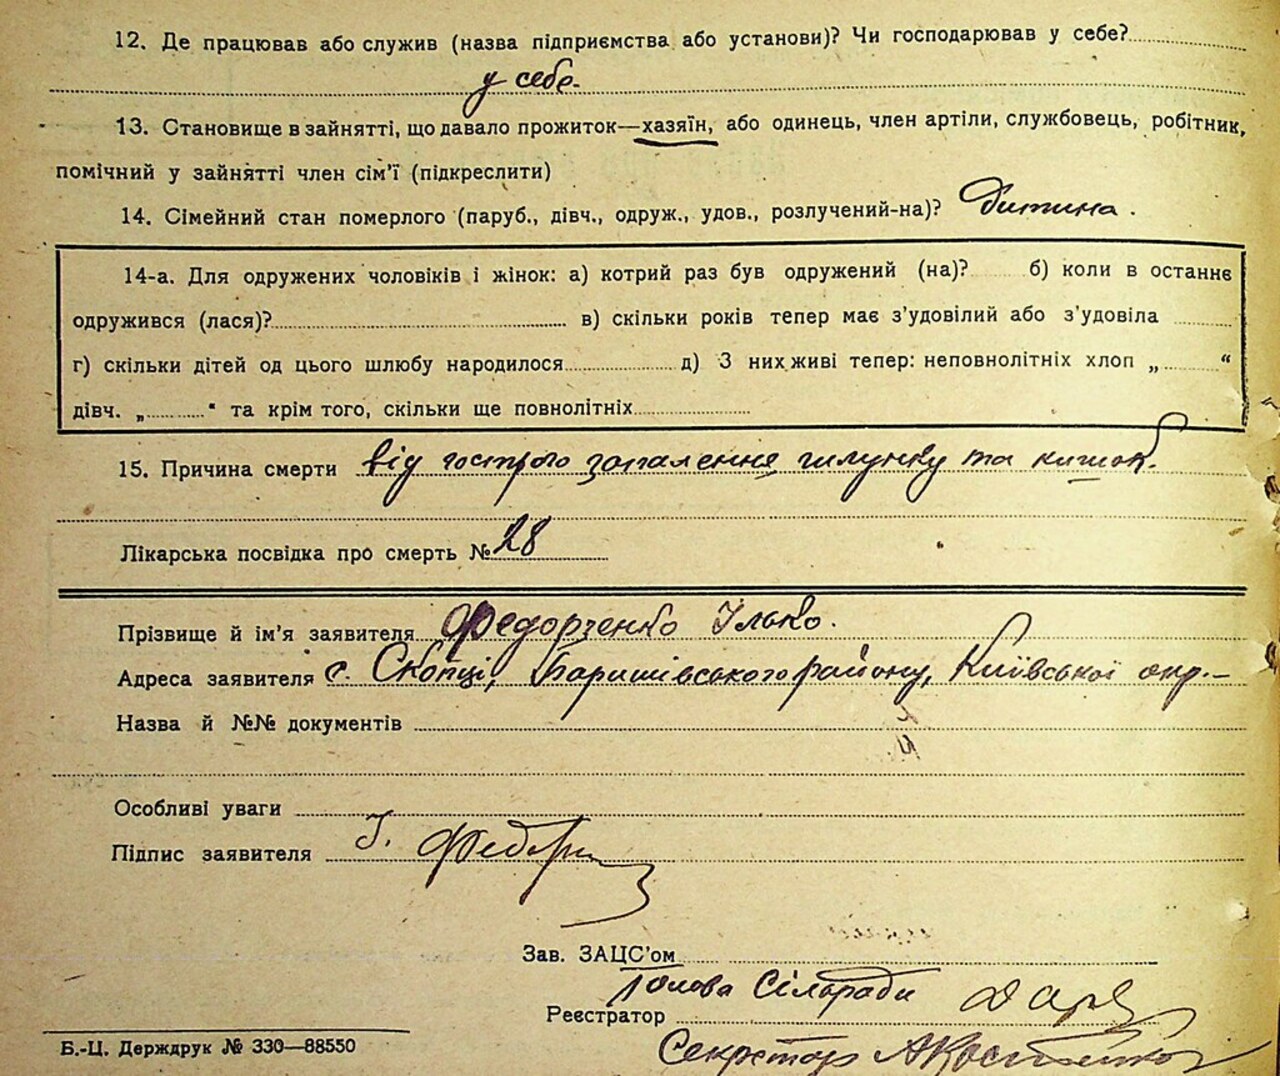 12. Де працював або служив (назва підприємства або установи)? Чи господарював у себе?
у себе.
13. Становище в зайнятті, що давало прожиток—хазяїн, або одинець, член артіли, службовець, робітник,
помічний у зайнятті член сім'ї (підкреслити)
14. Сімейний стан померлого (паруб., дівч., одруж., удов., розлучений-на)? Дитина.
14-а. Для одружених чоловіків і жінок: а) котрий раз був одружений (на)? б) коли в останнє
одружився (лася)? в) скільки років тепер має з'удовілий або з'удовіла
г) скільки дітей од цього шлюбу народилося д) З них живі тепер: неповнолітніх хлоп „ “
дівч. „ “ та крім того, скільки ще повнолітніх
15. Причина смерти від гострого запалення шлунку та кишок.
Лікарська посвідка про смерть № 28
Прізвище й ім'я заявителя Федорченко Ілько.
Адреса заявителя с. Скопці, Баришівського району, Київської окр.—
Назва й №№ документів
Особливі уваги
Підпис заявителя І. Федор
Зав. ЗАЦС'ом
Голова Сільради
Реєстратор
Секретар
Б.-Ц. Держдрук № 330—88550